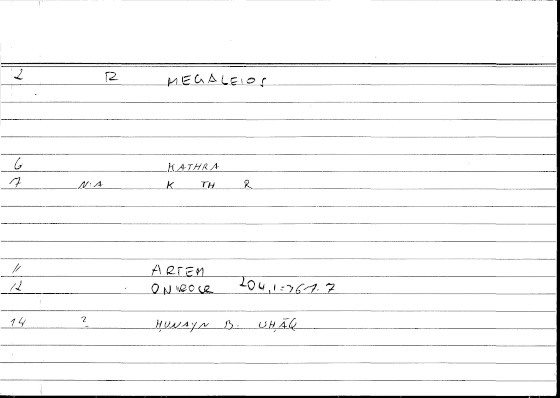 2 R MEGALEIOS
6 KATHRA
7 N.A K TH R
11 ARTEM
12 ONIROCR 204,1=761.7
14 ? ḤUNAYN B. ISHĀQ